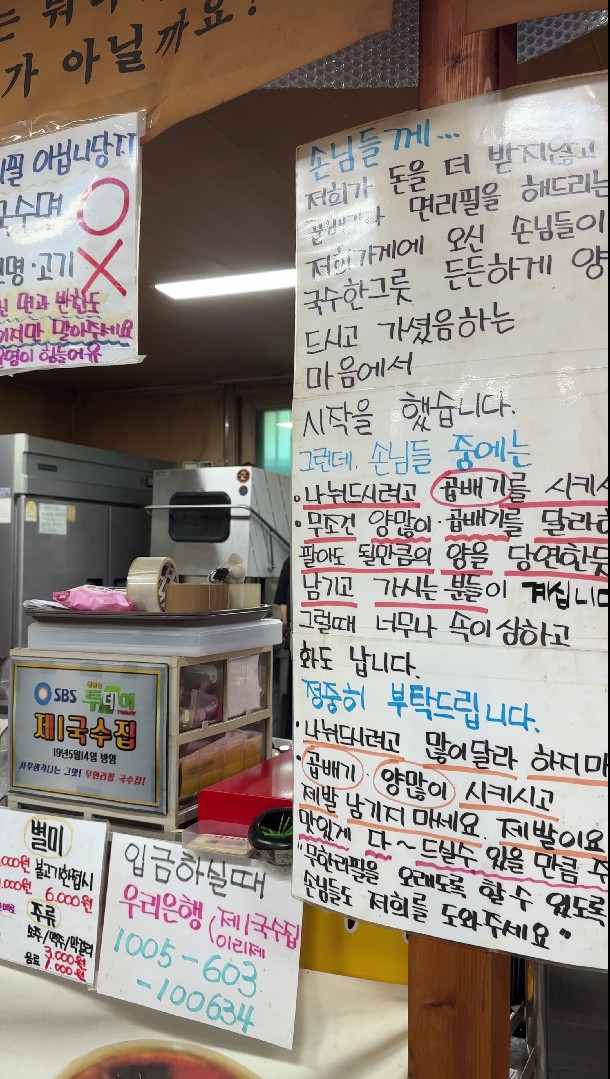 는
가 아닐까요?
리필 아닙니당
국수며
명·고기
면과 반찬도
지만 말아주세요
이 힘들어유
손님들께...
저희가 돈을 더 받지않고
곱배기나 면리필을 해드리는
저희가게에 오신 손님들이
국수한그릇 든든하게 양
드시고 가셨음하는
마음에서
시작을 했습니다.
그런데, 손님들 중에는
·나눠드시려고 곱배기를 시키시
·무조건 양많이·곱배기를 달라하
팔아도 될만큼의 양을 당연한듯
남기고 가시는 분들이 계십니다
그럴때 너무나 속이 상하고
화도 납니다.
정중히 부탁드립니다.
·나눠드시려고 많이달라 하지마
·곱배기·양많이 시키시고
제발 남기지 마세요. 제발이요
맛있게 다~드실수 있을 만큼 주
"무한리필을 오래도록 할 수 있도록
손님들도 저희를 도와주세요"
SBS 생방송 투데이
제1국수집
19년5월14일 방영
자꾸생각나는 그맛! 무한리필 국수집!
별미
,000원 불고기한접시
,000원 6.000원
주류
소주/맥주/막걸리
3.000원
음료 1.000원
입금하실때
우리은행 (제1국수집
이리제
1005-603
-100634